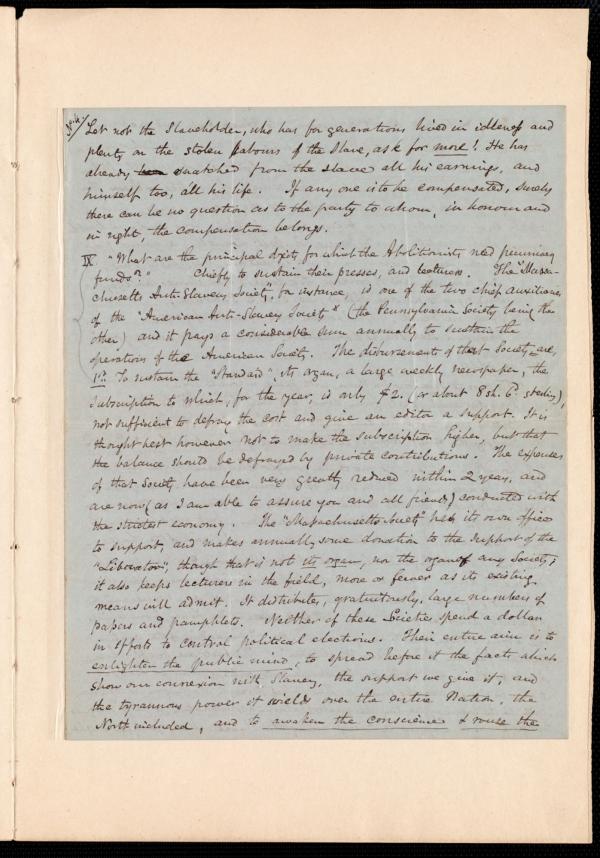 No. 4/
Let not the Slaveholder, who has for generations lived in idleness and
plenty on the stolen labours of the Slave, ask for more! He has
already snatched from the slave all his earnings, and
himself too, all his life. If any one is to be compensated, surely
there can be no question as to the party to whom, in honour and
in right, the compensation belongs.
IX "What are the principal objects for which the Abolitionists need pecuniary
funds?" Chiefly to sustain their presses, and lecturers. The "Massa-
chusetts Anti-Slavery Society", for instance, is one of the two chief auxiliaries
of the "American Anti-Slavery Society" (the Pennsylvania Society being the
other) and it pays a considerable sum annually to sustain the
operations of the American Society. The disbursements of that Society are,
1st. To sustain the "Standard", its organ, a large weekly newspaper, the
subscription to which, for the year, is only $2. (or about 8 sh. 6d. sterling),
not sufficient to defray the cost and give an editor a support. It is
thought best however not to make the subscription higher, but that
the balance should be defrayed by private contributions. The expenses
of that Society have been very greatly reduced within 2 years, and
are now (as I am able to assure you and all friends) conducted with
the strictest economy. The "Massachusetts Society" has its own office
to support, and makes annually some donation to the support of the
"Liberator", though that is not its organ, nor the organ of any Society;
it also keeps lecturers in the field, more or fewer as its existing
means will admit. It distributes, gratuitously, large numbers of
papers and pamphlets. Neither of these Societies spend a dollar
in efforts to control political elections. Their entire aim is to
enlighten the public mind, to spread before it the facts which
show our connexion with Slavery, the support we give it, and
the tyrannous power it wields over the entire Nation, the
North included, and to awaken the conscience & rouse the